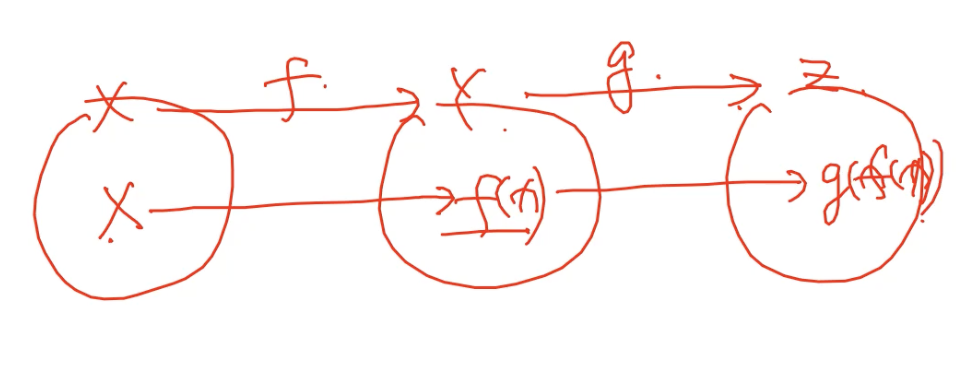 X f. Y g. Z
x f(x) g(f(x))